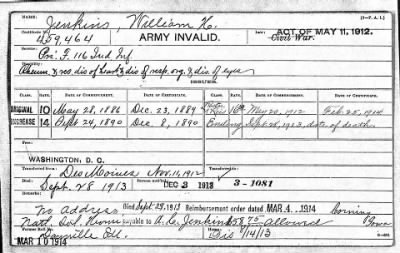 NAME: Jenkins, William H. (3—P. A. I.)
Certificate No. 459,464 ARMY INVALID. ACT OF MAY 11, 1912.
Civil War.
Service: Pri. F. 116 Ind Inf
Rheum. & res. dis of heart & dis of resp. org. & dis of eyes
CLASS. RATE. DATE OF CERTIFICATE. DATE OF COMMENCEMENT. CLASS. RATE. DATE OF CERTIFICATE. DATE OF COMMENCEMENT.
ORIGINAL 10 May 28, 1886 Dec. 23, 1889 16 May 20, 1912 Feb 25, 1914
INCREASE 14 Sept 24, 1890 Dec 8, 1890 Ending Sept 28, 1913, date of death.
WASHINGTON, D. C.
Transferred from Des Moines Nov. 11, 1912
Died Sept. 28 1913 DEC 3 1913 3-1081
No address Died Sept. 28, 1913 Reimbursement order dated MAR. 4, 1914 Corning
Natl. Sol. Home payable to A. C. Jenkins $58.75 Allowed Iowa
Former Roll No. Danville Ill. Dis 8/14/13
MAR 10 1914